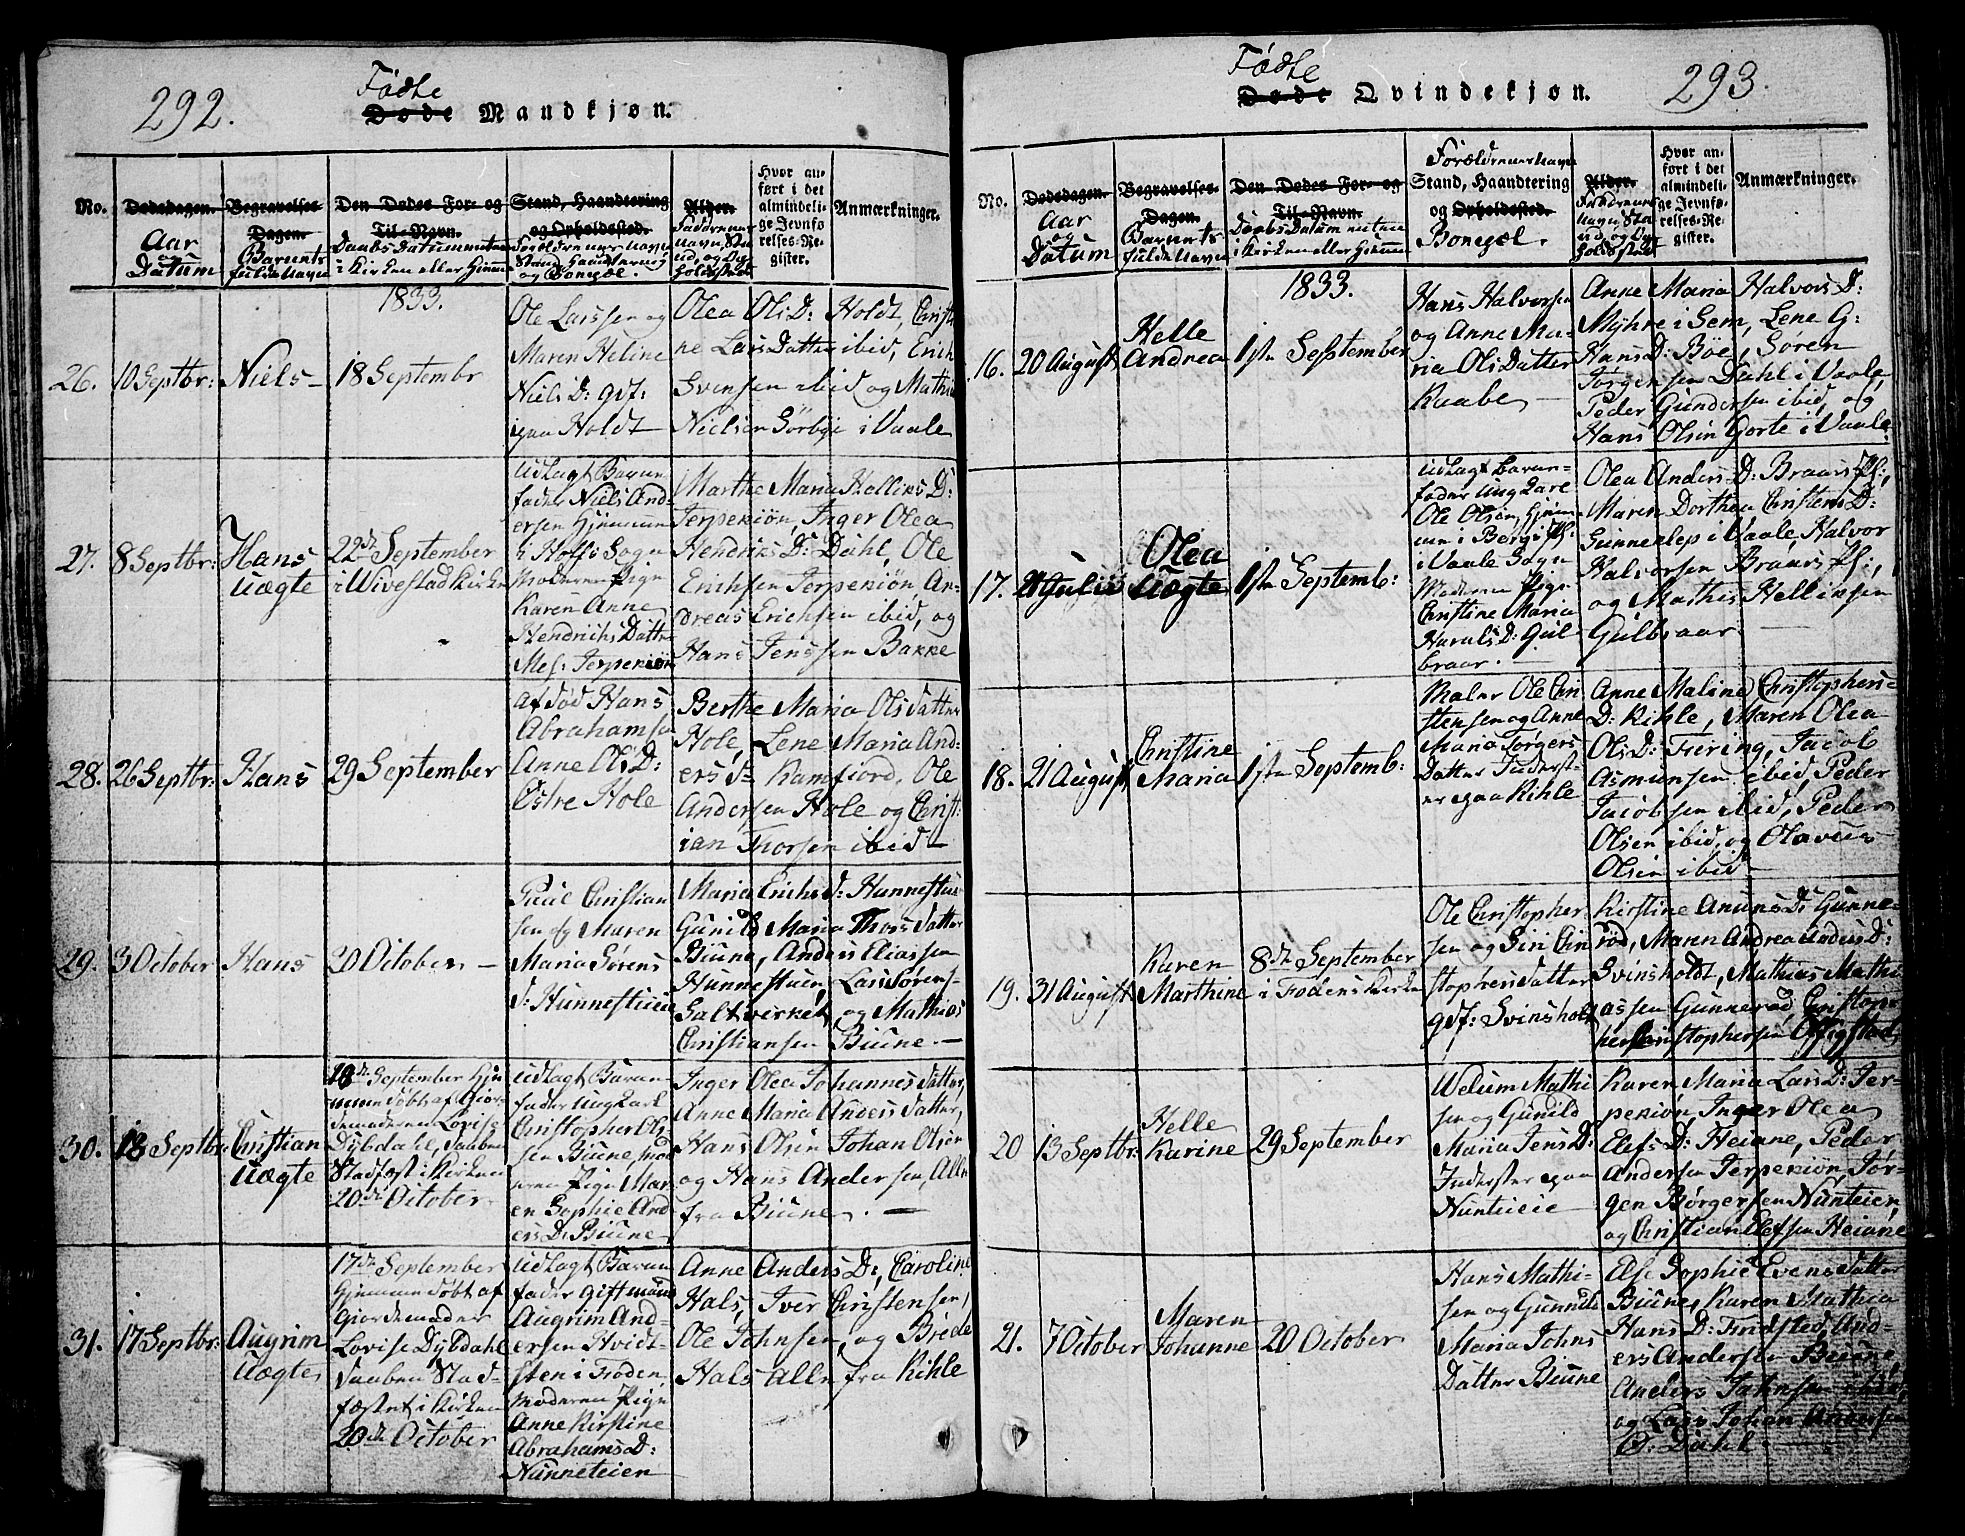 292.
Fødte
Døde Mandkjøn.
No.
Dødsdagen.
Aar
og
Datum
Begravelses
Dagen.
Barnets
fulde Navn
Den Dødes For- og
Til-Navn.
Daabs Datum enten
i Kirken eller Hiemme
Stand, Haandtering
og Opholdssted.
Forældrenes Navn
Stand, Haandtering
og Boepæl.
Alder.
Faddernes
Navn, Sta
nd, og Op
holdsted
Hvor an-
ført i det
almindeli-
ge Jevnfø-
relses-Re-
gister.
Anmærkninger.
1833.
26.
10 Septbr:
Niels
18 Septembr
Ole Larssen og
Maren Heline
Niels D: gdf:
paa Holdt
Olea Ols D: Holdt, Christi
ne Lars Datter ibid, Erich
Svensen ibid og Mathis
Nielsen Sörbye i Vaale
27.
8 Septbr:
Hans
Uægte
22de September
i Wivestad Kirken
Udlagt Barne
fader Niels And-
ersen Hjemme
i Hofs Sogn
Moderen Pige
Karen Anne
Hendrichs Datter
Mes: Jerpekiøn
Marthe Maria Hellius D:
Jerpekiøn, Inger Olea
Hendrichs D: Dahl, Ole
Erichsen Jerpekiøn, An-
dreas Erichsen ibid, og
Hans Jenssen Bakke
28.
26 Septbr:
Hans
29 September
Af død Hans
Abrahamsen
Anne Ols D:
Østre Hole
Berthe Maria Olsdatter
Hole, Lene Maria And-
ers D: Ramfjord, Ole
Andersen Hole og Christ-
ian Thorsen ibid
29.
3 October
Hans
20 October
Poul Christian
sen og Maren
Maria Sørens
D: Hunnestuen
Maria Erichs D: Hunnestue
Gunild Maria Thorsdatter
Biune, Anders Eliassen
Hunnestuen, Lars Sørens-
Saltvirket, og Mathias
Christiansen Biune
30.
13 Septbr:
Christian
Uægte
18de September Hje
mme døbt af Gior-
demoderen Lovise
Dybdahl, Daaben
Stadfæst i Kirken
20de October
Udlagt Barne
fader Ung Karl
Christopher Ol-
sen Biune, Mod
eren Pige Mar
en Sophie And
ers D: Biune
Inger Olea Johannesdatter,
Anne Maria Andersdatter,
Hans Olsen Johan Olsen
og Hans Andersen, Alle
fra Biune.
31.
17 Septbr:
Augrim
Uægte
17de September
Hjemme døbt af
Giordemoder
Lovise Dybdahl
Daaben Stad-
fæstet i Kirken
20de October
Udlagt Barne
fader gift mand
Augrim And-
ersen Hvidt-
sten i Foden,
Moderen Pige
Anne Kirstine
Abrahams D:
Nunneteien
Anne Anders D:, Caroline
Hals, Iver Christensen,
Ole Johnsen, og Brede
Hals Alle fra Kihle
293.
Fødte
Døde Qvindekjøn.
No.
Dødsdagen.
Aar
og
Datum
Begravelses-
Dagen.
Barnets
fulde Navn
Den Dødes For- og
Til-Navn.
Daabs Datum enten
i Kirken eller Hiemme
Forældrenes Navn
Stand, Haandtering
og Opholdssted.
Boepæl.
Alder.
Faddrenes
Navn, Sta
nd, og Op
holdsted
Hvor an-
ført i det
almindeli-
ge Jevnfø-
relses-Re-
gister.
Anmærkninger.
1833.
16.
20 August
Helle
Andrea
1ste September
Hans Halvorsen
og Anne Ma-
ria Ols Datter
Raabe
Anne Maria Halvors D:
Myhre i Sem, Lene G:
Hans D: Bøe, Søren
Jørgensen Dahl i Vaale,
Peder Gundersen ibid, og
Hans Olsen Gorte i Vaale
17.
Julii
Olea
Uægte
1ste Septemb:
Udlagt Barne-
fader Ung Karl
Ole Olsen, Hjem
me i Bergs Pl:
i Vaale Sogn
Moderen Pige
Christine Maria
Haruls D: Gul
braar.
Olea Anders D: Braars Pl:,
Maren Dorthea Christens D:
Gunnerlep i Vaale, Halvor
Halvorsen Braars Pl:,
og Mathis Hellinsen
Gulbraar
18.
21 August
Christine
Maria
1ste Septemb:
Maler Ole Chri
stensen og Anne
Maria Jørgens
Datter Inderst-
er paa Kihle
Anne Maline Christophers-
D: Kihle, Maren Olea
Ols D: Freing, Jacob
Asmunsen ibid, Peder
Jacobsen ibid, Peder
Olsen ibid, og Olavus
Olsen ibid
19.
31 August
Karen
Marthine
8de September
i Fodens Kirke
Ole Christopher-
sen og Siri Chri
stophersdatter
gdf: Svinsholt
Kirstine Anuns D: Gunne-
rød, Maren Andrea Anders D:
Svinsholdt, Mathias Mathi
assen Gunnerød Christop-
her Christophersen Effigstad
20
13 Septbr:
Helle
Karine
29 September
Welum Mathi
sen og Gunild
Maria Jens D:
Inderster paa
Nunteie
Karen Maria Lars D: Jer-
pekiøn, Inger Olea
Elefs D: Heiane, Peder
Andersen Jerpekiøn, Jør-
gen Børgersen Nunteien,
og Christian Elefsen Heiane
21.
7 October
Maren
Johanne
20 October
Hans Mathi-
sen og Gunnild
Maria Johns
Datter Biune
Else Sophie Evensdatter
Biune, Karen Mathia
Hans D: Fredsted, And-
ers Andersen Biune
Anders Johnsen ibid,
og Lars Johan Andersen
Dahl